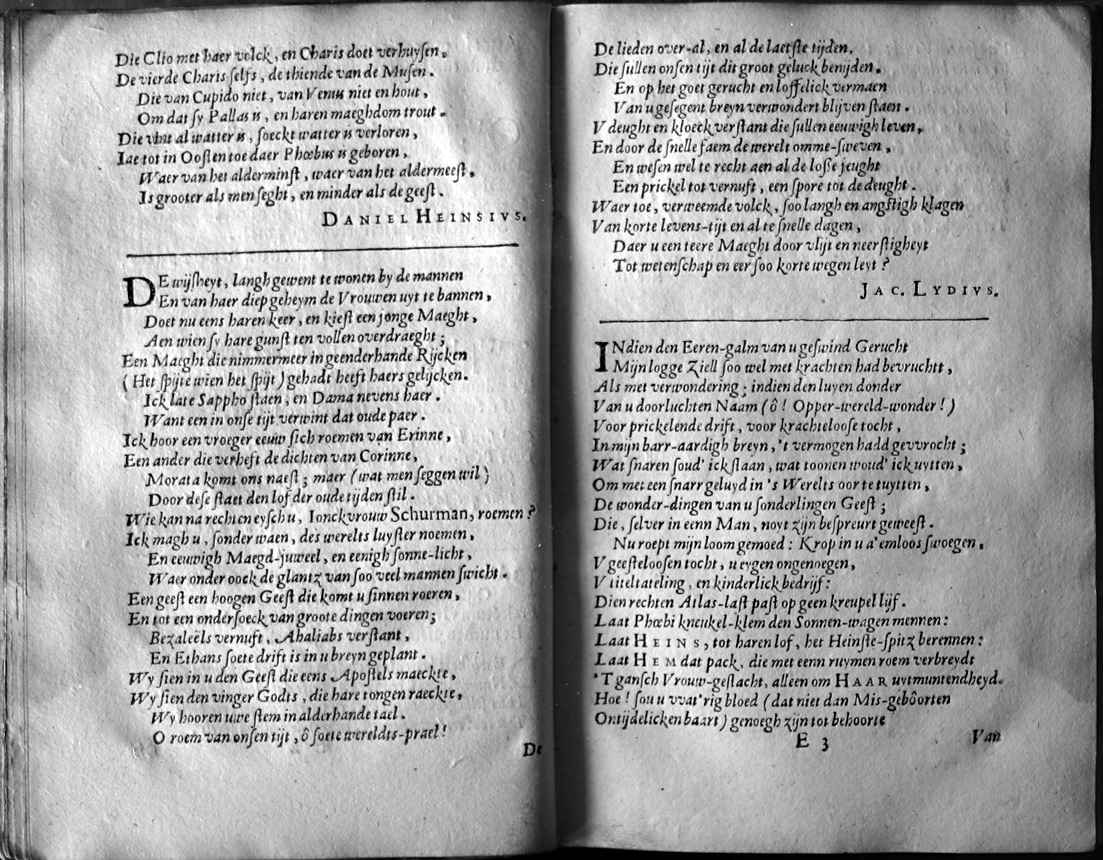 Die Clio met haer volck, en Charis doet verhuysen.
De vierde Charis selfs, de thiende van de Musen.
Die van Cupido niet, van Venus niet en hout,
Om dat sy Pallas is, en haren maeghdom trout.
Die vint al watter is, soeckt watter is verloren,
Iae tot in Oosten toe daer Phœbus is geboren,
Waer van het alderminst, waer van het aldermeest,
Is grooter als men seght, en minder als de geest.
DANIEL HEINSIVS.
DE wijsheyt, langh gewent te wonen by de mannen
En van haer diep geheym de Vrouwen uyt te bannen,
Doet nu eens haren keer, en kiest een jonge Maeght,
Aen wien sy hare gunst ten vollen overdraeght;
Een Maeght die nimmermeer in geenderhande Rijcken
(Het spijte wien het spijt) gehadt heeft haers gelijcken.
Ick late Sappho staen, en Dama nevens haer.
Want een in onse tijt verwint dat oude paer.
Ick hoor een vroeger eeuw sich roemen van Erinne,
Een ander die verheft de dichten van Corinne,
Morata komt ons naest; maer (wat men seggen wil)
Door dese staet den lof der oude tijden stil.
Wie kan na rechten eysch u, Ionckvrouw Schurman, roemen?
Ick magh u, sonder waen, des werelts luyster noemen,
En eeuwigh Maegd-juweel, en eenigh sonne-licht,
Waer onder oock de glantz van soo veel mannen swicht.
Een geest een hoogen Geest die komt u sinnen roeren,
En tot een ondersoeck van groote dingen voeren;
Bezaleëls vernuft, Ahaliabs verstant,
En Ethans soete drift is in u breyn geplant.
Wy sien in u den Geest die eens Apostels maeckte,
Wy sien den vinger Godts, die hare tongen raeckte,
Wy hooren uwe stem in alderhande tael.
O roem van onsen tijt, ô soete wereldts-prael!
De
De lieden over-al, en al de laetste tijden,
Die sullen onsen tijt dit groot geluck benijden,
En op het goet gerucht en loffelick vermaen
Van u gesegent breyn verwondert blijven staen.
V deught en kloeck verstant die sullen eeuwigh leven,
En door de snelle faem de werelt omme-sweven,
En wesen wel te recht aen al de losse jeught
Een prickel tot vernuft, een spore tot de deught.
Waer toe, verweemde volck, soo langh en angstigh klagen
Van korte levens-tijt en al te snelle dagen,
Daer u een teere Maeght door vlijt en neerstigheyt
Tot wetenschap en eer soo korte wegen leyt?
JAC. LYDIVS.
INdien den Eeren-galm van u geswind Gerucht
Mijn logge Ziell soo wel met krachten had bevruchtt,
Als met verwondering; indien den luyen donder
Van u doorluchten Naam (ô! Opper-wereld-wonder!)
Voor prickelende drift, voor krachteloose tocht,
In mijn barr-aardigh breyn, 't vermogen hadd gevvrocht;
Wat snaren soud' ick slaan, wat toonen woud' ick uytten,
Om met een snarr geluyd in 's Werelts oor te tuytten,
De wonder-dingen van u sonderlingen Geest;
Die, selver in eenn Man, noyt zijn bespreurt geweest.
Nu roept mijn loom gemoed: Krop in u a'emloos swoegen,
V geesteloosen tocht, u eygen ongenoegen,
V titeltateling, en kinderlick bedrijf:
Dien rechten Atlas-last past op geen kreupel lijf.
Laat Phœbi kneukel-klem den Sonnen-wagen mennen:
Laat HEINS, tot haren lof, het Heinste-spitz berennen:
Laat HEM dat pack, die met eenn ruymen roem verbreydt
'T gansch Vrouw-geslacht, alleen om HAAR uytmuntendheyd.
Hoe! sou u vvat'rig bloed (dat niet dan Mis-gebôorten
Ontijdelicken baart) genoegh zijn tot behoorte
E 3
Van